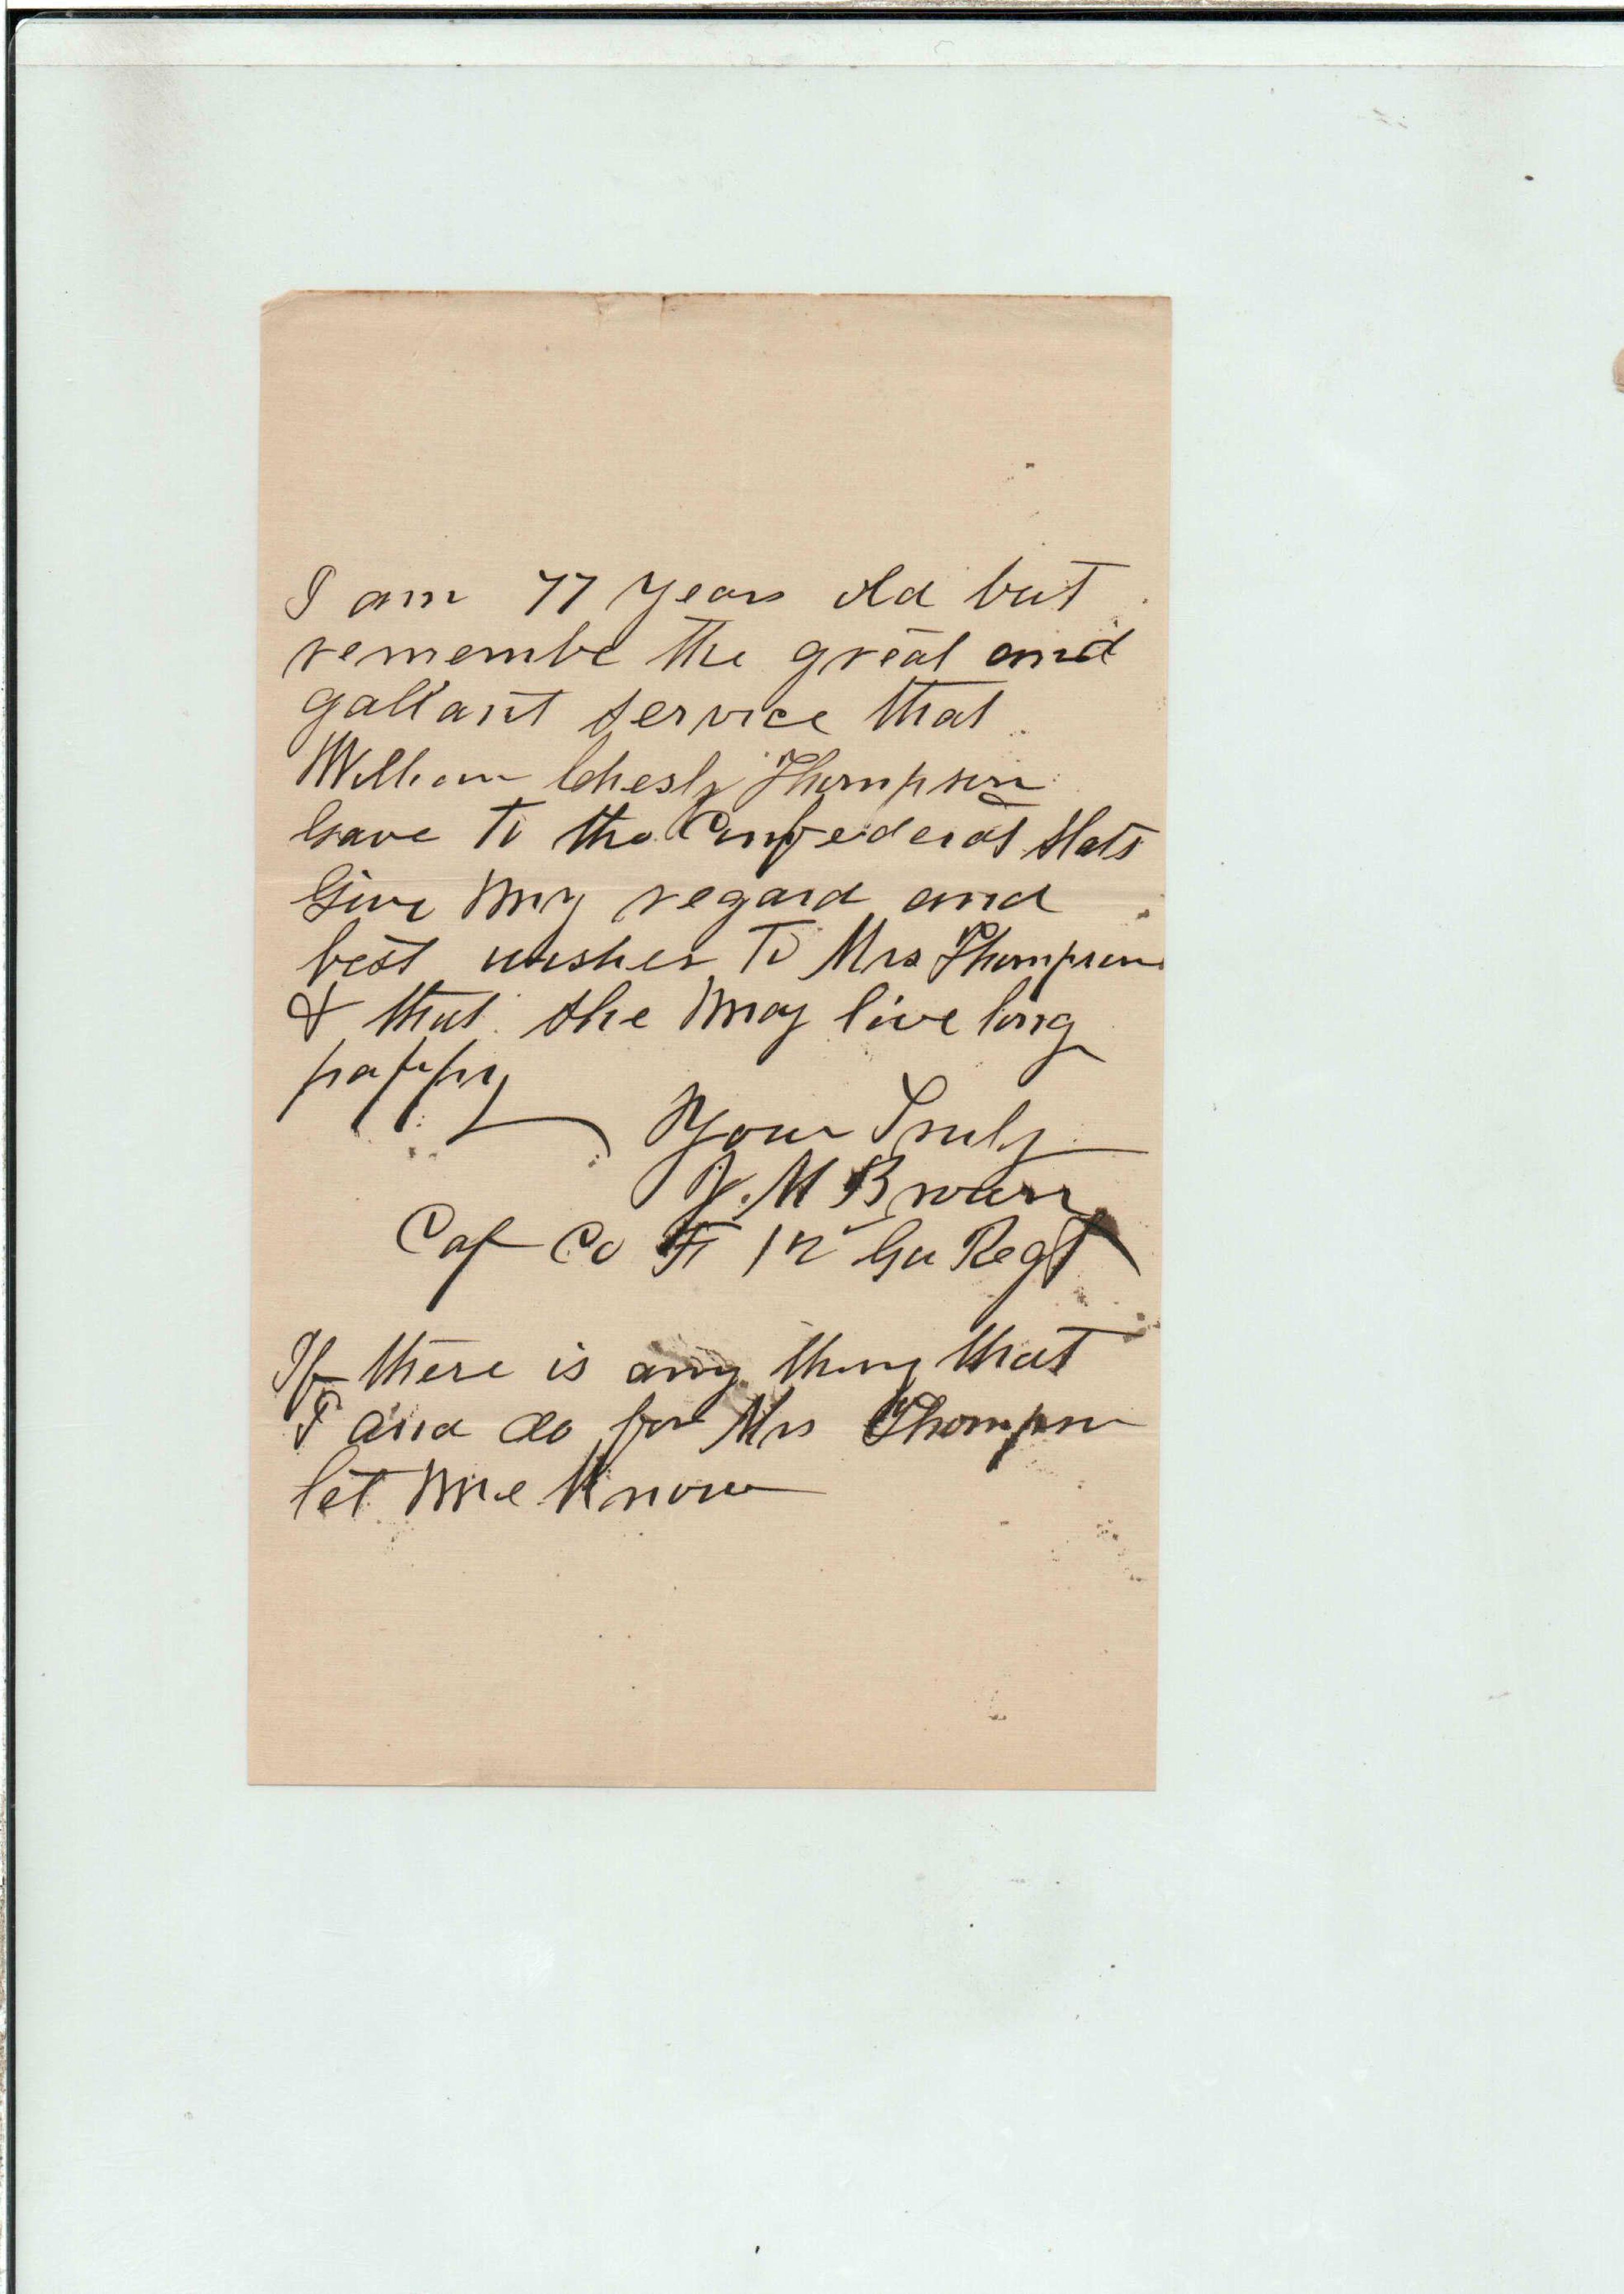 I am 77 years old but
remembe the great and
gallant service that
William Chesly Thompson
Gave To the Confederat Stats
Give my regard and
best wishes To Mrs Thompson
& that she may live long
happy
Your Truly
J. M Brown
Cap Co F 12 Ga Regt
If there is any thing that
I do for Mrs Thompson
let me Know